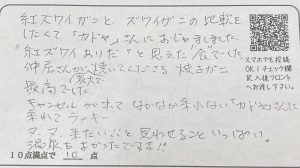 紅ズワイガニと、ズワイガニの比較を
したくて「カドヤ」さんにおじゃましました。
"紅ズワイありだ"と思えた会でした
仲居さんが焼いてくださる 焼きガニ
最高でした。
キャンセルがでて なかなか来れない「カドヤ」さんに
来れて ラッキー
又、又、来たい、と思わせること いっぱい。
温泉もよかったですョ!!
10点満点で 10 点
スマホでも投稿
OK!チェック欄
記入後フロント
へお渡し下さい。